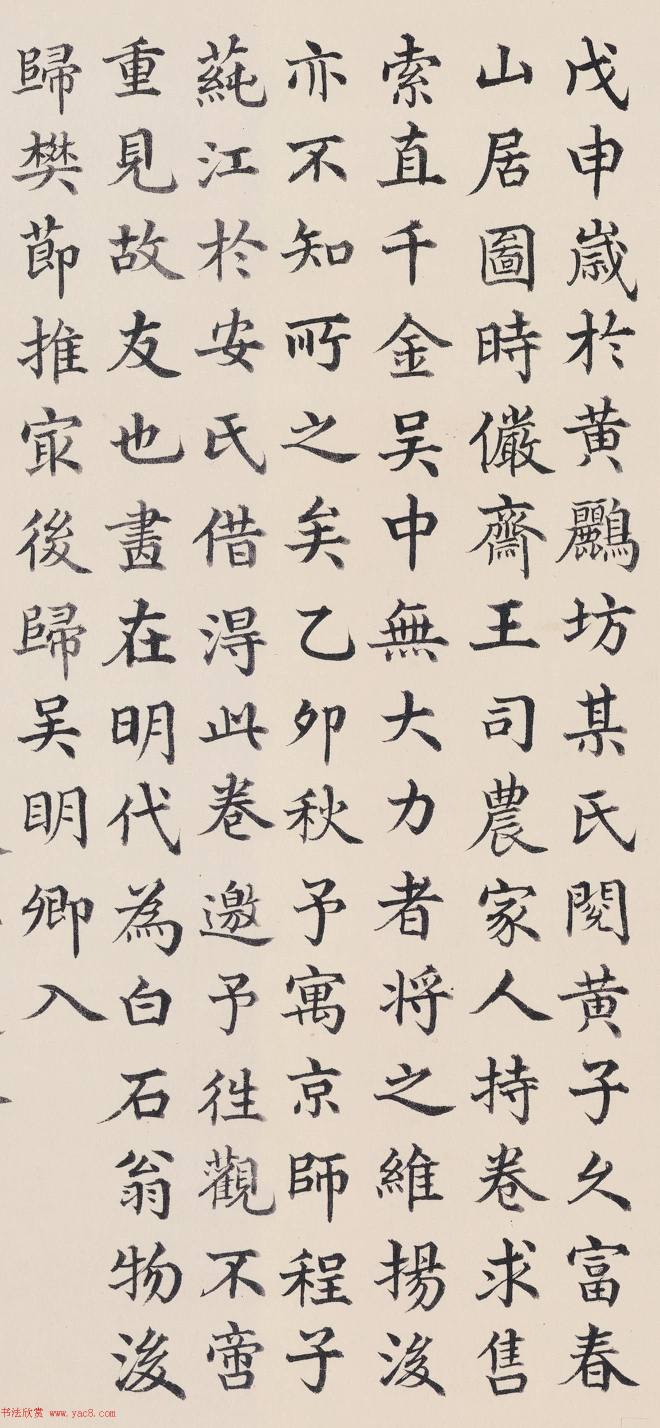 戊申嵗於黄鸝坊某氏閱黄子久富春
山居圖時儼齋王司農家人持卷求售
索直千金吴中無大力者将之維揚後
亦不知所之矣乙卯秋予寓京師程子
蒓江於安氏借得此卷邀予往觀不啻
重見故友也畵在明代為白石翁物後
歸樊節推寅後歸吴明卿入
书法欣赏 www.yac8.com